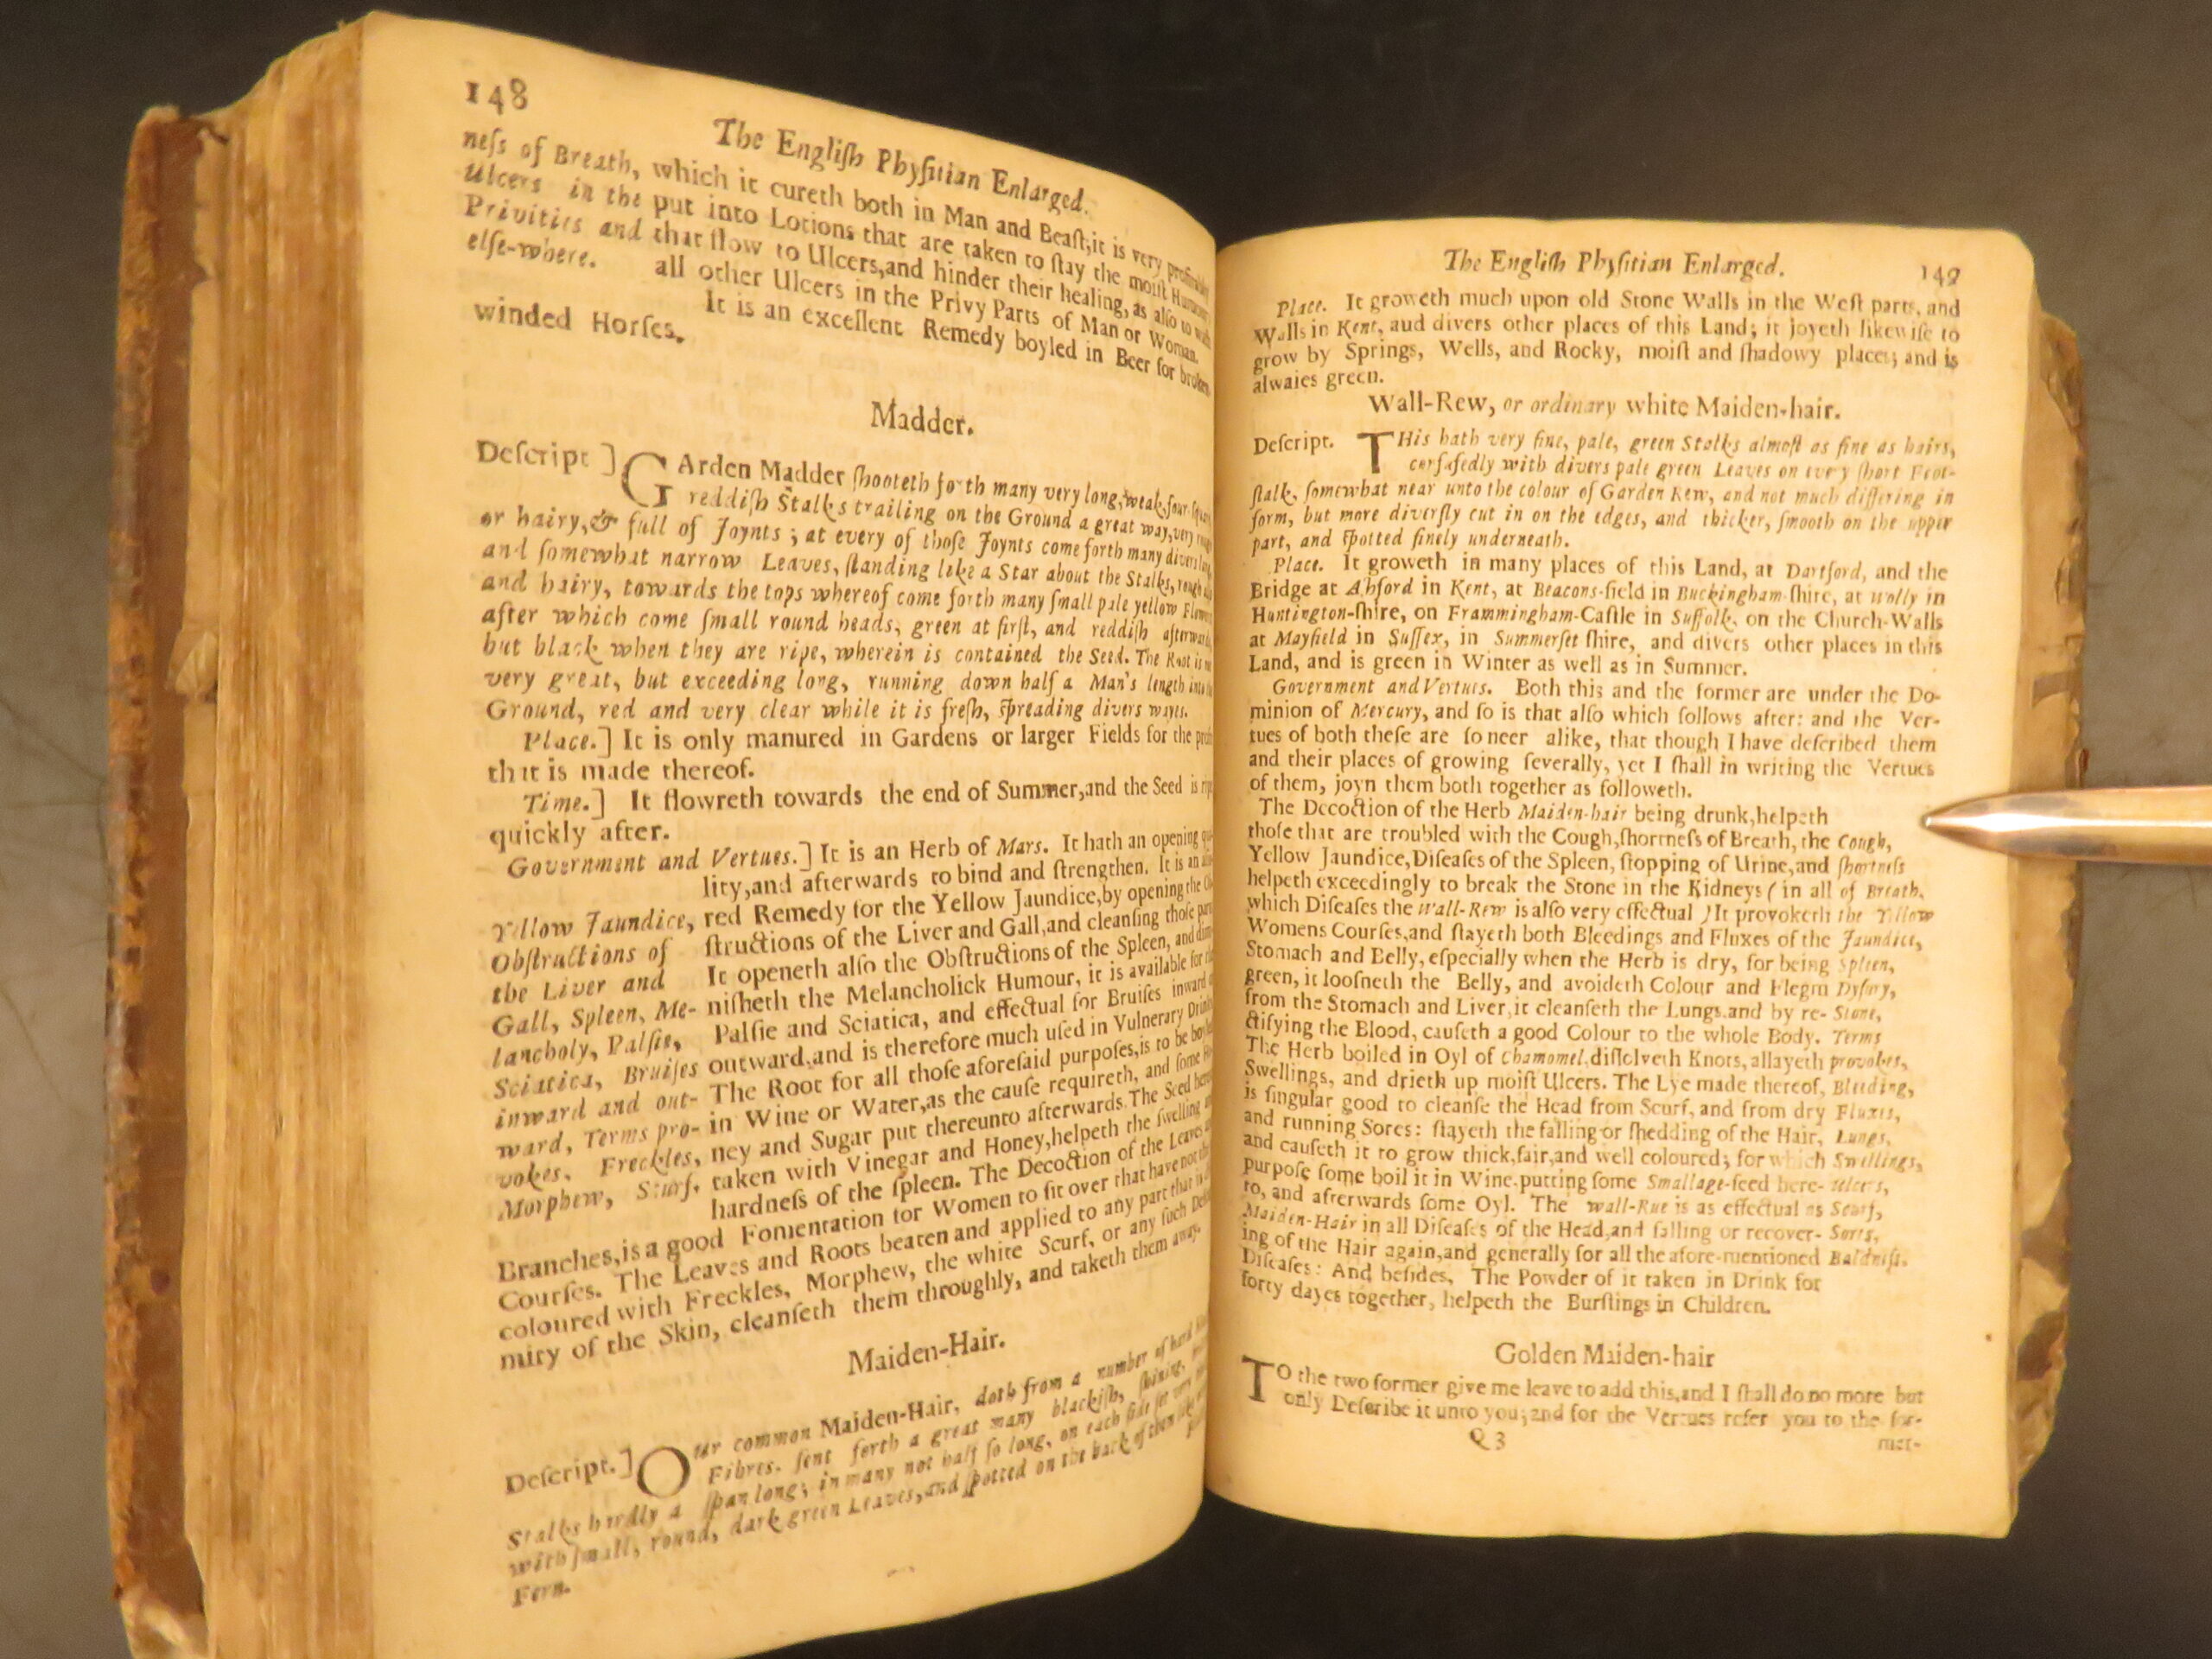 148
The Engliſh Phyſitian Enlarged.
neſs of Breath, which it cureth both in Man and Beaſt; it is very profitable
Ulcers in the put into Lotions that are taken to ſtay the moiſt Humours
Privities and that flow to Ulcers, and hinder their healing, as alſo to waſh
elſe-where. all other Ulcers in the Privy Parts of Man or Woman.
It is an excellent Remedy boyled in Beer for broken
winded Horſes.
Madder.
Deſcript ] GArden Madder ſhooteth forth many very long, weak, four-ſquare
reddiſh Stalks trailing on the Ground a great way, very rough
or hairy, & full of Joynts ; at every of thoſe Joynts come forth many divers long
and ſomewhat narrow Leaves, ſtanding like a Star about the Stalks, rough alſo
and hairy, towards the tops whereof come forth many ſmall pale yellow Flowers
after which come ſmall round heads, green at firſt, and reddiſh afterwards,
but black when they are ripe, wherein is contained the Seed. The Root is not
very great, but exceeding long, running down half a Man's length into the
Ground, red and very clear while it is freſh, ſpreading divers wayes.
Place.] It is only manured in Gardens or larger Fields for the profit
that is made thereof.
Time.] It flowreth towards the end of Summer, and the Seed is ripe
quickly after.
Government and Vertues.] It is an Herb of Mars. It hath an opening
lity, and afterwards to bind and ſtrengthen. It is an
Yellow Jaundice, red Remedy for the Yellow Jaundice, by opening the Ob
Obſtructions of ſtructions of the Liver and Gall, and cleanſing thoſe parts
the Liver and It openeth alſo the Obſtructions of the Spleen, and dimi
Gall, Spleen, Me- niſheth the Melancholick Humour, it is available for the
lancholy, Palſie, Palſie and Sciatica, and effectual for Bruiſes inward
Sciatica, Bruiſes outward, and is therefore much uſed in Vulnerary Drinks
inward and out- The Root for all thoſe aforeſaid purpoſes, is to be boyled
ward, Terms pro- in Wine or Water, as the cauſe requireth, and ſome Ho
vokes. Freckles, ney and Sugar put thereunto afterwards. The Seed hereof
Morphew, Scurf. taken with Vinegar and Honey, helpeth the ſwelling
hardneſs of the ſpleen. The Decoction of the Leaves
Branches, is a good Fomentation for Women to ſit over that have not their
Courſes. The Leaves and Roots beaten and applied to any part that is
coloured with Freckles, Morphew, the white Scurf, or any ſuch Defor
mity of the Skin, cleanſeth them throughly, and taketh them away.
Maiden-Hair.
Deſcript.] OUr common Maiden-Hair, doth from a number of hard
Fibres. ſent forth a great many blackiſh, ſhining,
Stalks hardly a ſpan long; in many not half ſo long, on each ſide ſet very
with ſmall, round, dark green Leaves, and ſpotted on the back of them like
Fern.
The Engliſh Phyſitian Enlarged.
149
Place. It groweth much upon old Stone Walls in the Weſt parts, and
Walls in Kent, aud divers other places of this Land; it joyeth likewiſe to
grow by Springs, Wells, and Rocky, moiſt and ſhadowy places; and is
alwaies green.
Wall-Rew, or ordinary white Maiden-hair.
Deſcript. THis hath very fine, pale, green Stalks almoſt as fine as hairs,
confuſedly with divers pale green Leaves on every ſhort Foot-
ſtalk, ſomewhat near unto the colour of Garden Rew, and not much differing in
form, but more diverſly cut in on the edges, and thicker, ſmooth on the upper
part, and ſpotted finely underneath.
Place. It groweth in many places of this Land, at Dartford, and the
Bridge at Aſhford in Kent, at Beacons-field in Buckingham-ſhire, at Wolly in
Huntington-ſhire, on Frammingham-Caſtle in Suffolk, on the Church-Walls
at Mayfield in Suſſex, in Summerſet ſhire, and divers other places in this
Land, and is green in Winter as well as in Summer.
Government and Vertues. Both this and the former are under the Do-
minion of Mercury, and ſo is that alſo which follows after: and the Ver-
tues of both theſe are ſo neer alike, that though I have deſcribed them
and their places of growing ſeverally, yet I ſhall in writing the Vertues
of them, joyn them both together as followeth.
The Decoction of the Herb Maiden-hair being drunk, helpeth
thoſe that are troubled with the Cough, ſhortneſs of Breath, the Cough,
Yellow Jaundice, Diſeaſes of the Spleen, ſtopping of Urine, and ſhortneſs
helpeth exceedingly to break the Stone in the Kidneys ( in all of Breath.
which Diſeaſes the Wall-Rew is alſo very effectual ) It provoketh the Yellow
Womens Courſes, and ſtayeth both Bleedings and Fluxes of the Jaundice,
Stomach and Belly, eſpecially when the Herb is dry, for being Spleen,
green, it looſneth the Belly, and avoideth Colour and Flegm Dyſury,
from the Stomach and Liver, it cleanſeth the Lungs, and by re- Stone,
ctifying the Blood, cauſeth a good Colour to the whole Body. Terms
The Herb boiled in Oyl of Chamomel, diſſolveth Knots, allayeth provokes,
Swellings, and drieth up moiſt Ulcers. The Lye made thereof, Bleeding,
is ſingular good to cleanſe the Head from Scurf, and from dry Fluxes,
and running Sores: ſtayeth the falling or ſhedding of the Hair, Lungs,
and cauſeth it to grow thick, fair, and well coloured; for which Swellings,
purpoſe ſome boil it in Wine, putting ſome Smallage-ſeed here- Ulcers,
to, and afterwards ſome Oyl. The Wall-Rue is as effectual as Scurf,
Maiden-Hair in all Diſeaſes of the Head, and falling or recover- Sores,
ing of the Hair again, and generally for all the afore-mentioned Baldneſs.
Diſeaſes: And beſides, The Powder of it taken in Drink for
forty dayes together, helpeth the Burſtings in Children.
Golden Maiden-hair
TO the two former give me leave to add this, and I ſhall do no more but
only Deſcribe it unto you; and for the Vertues refer you to the for-
Q 3
mer-